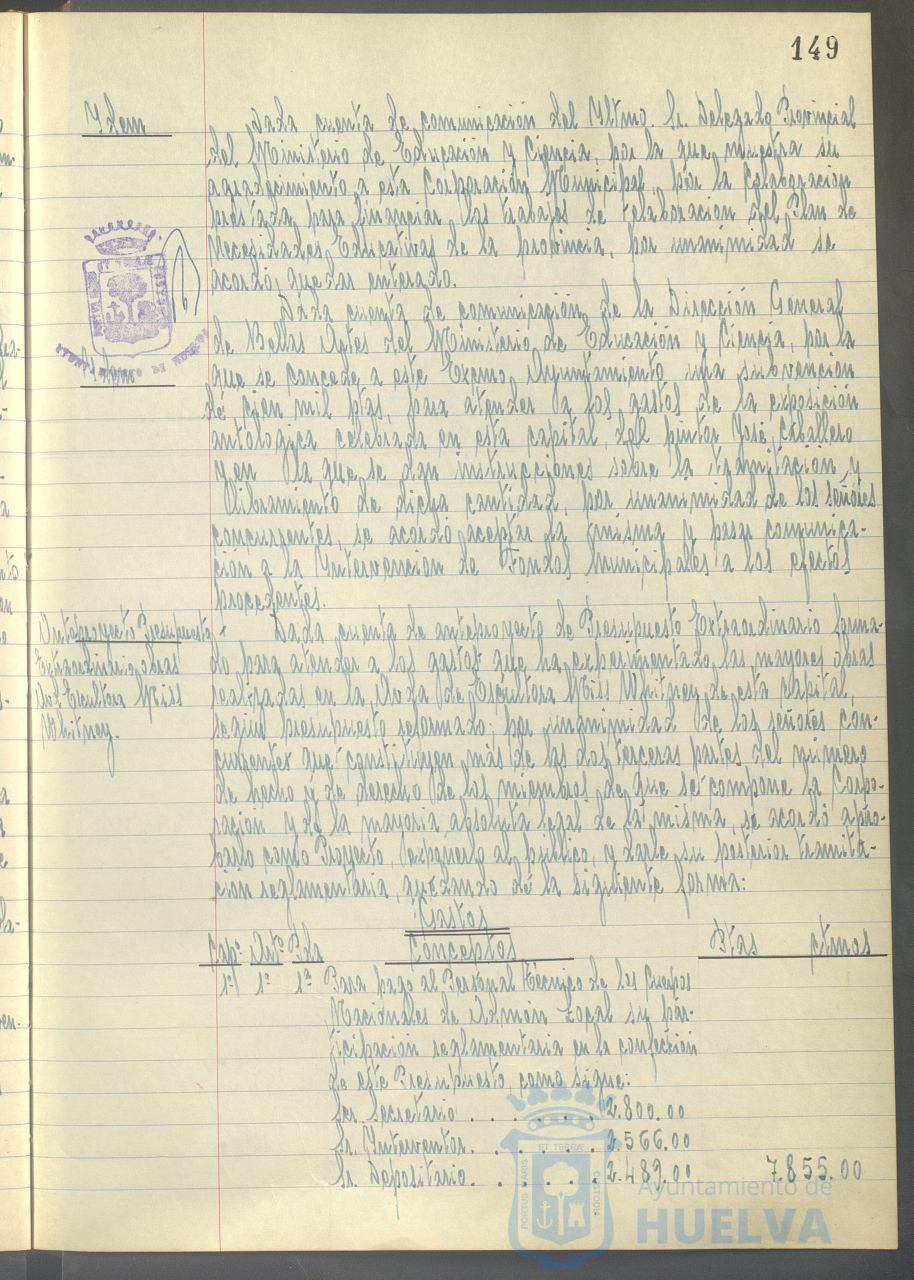 149
Idem
Dada cuenta de comunicación del Iltmo. Sr. Delegado Provincial
del Ministerio de Educación y Ciencia, por la que muestra su
agradecimiento a esta Corporación Municipal, por la colaboración
prestada para financiar los trabajos de elaboración del Plan de
Necesidades Educativas de la provincia, por unanimidad se
acordó, quedar enterado.
Idem
Dada cuenta de comunicación de la Dirección General
de Bellas Artes del Ministerio de Educación y Ciencia, por la
que se concede a este Excmo. Ayuntamiento una subvención
de cien mil ptas, para atender a los gastos de la exposición
antologica celebrada en esta capital, del pintor José Caballero
y en la que se dan instrucciones sobre la tramitación y
libramiento de dicha cantidad, por unanimidad de los señores
concurrentes, se acordó aceptar la misma y pasar comunica-
ción a la Intervencion de Fondos Municipales a los efectos
procedentes.
Anteproyecto Presupuesto
Extraordinario obras
Avd. Escultora Miss
Whitney.
Dada cuenta de anteproyecto de Presupuesto Extraordinario forma-
do para atender a los gastos que ha experimentado, las mayores obras
realizadas en la Avda de Escultora Miss Whitney de esta capital,
según presupuesto reformado; por unanimidad de los señores con-
currentes que constituyen más de las dos terceras partes del número
de hecho y de derecho de los miembros de que se compone la Corpo-
ración y de la mayoria absoluta legal de la misma, se acordó apro-
barlo como Proyecto, exponerlo al público, y darle su posterior tramita-
ción reglamentaria, quedando de la siguiente forma:
Gastos
Cap: Art: Pda Conceptos Ptas ctmos
1º 1º 1ª Para pago al Personal Técnico de los Cuerpos
Nacionales de Admón Local su par-
ticipación reglamentaria en la confección
de este Presupuesto, como sigue:
Sr. Secretario . . . . . . . 2.800.00
Sr. Interventor . . . . . . 2.566.00
Sr. Depositario . . . . . . 2.489.00 7.855.00
ET TERRÆ
PORTUS MARIS
CUSTODIA
Ayuntamiento de
HUELVA